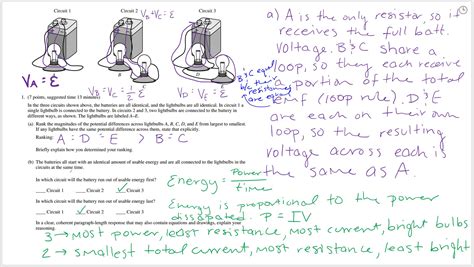 Circuit 1
Circuit 2
Circuit 3
V_B+V_C = ℰ
V_A = ℰ
V_B = V_C = ½ ℰ
V_D = V_E = ℰ
B
D
a) A is the only resistor, so it
receives the full batt.
voltage. B&C share a
loop, so they each receive
a portion of the total
emf (loop rule). D&E
are each on their own
loop, so the resulting
voltage across each is
the same as A.
B&C equal
b/c their
resistances
are eq.
1. (7 points, suggested time 13 minutes)
In the three circuits shown above, the batteries are all identical, and the lightbulbs are all identical. In circuit 1 a
single lightbulb is connected to the battery. In circuits 2 and 3, two lightbulbs are connected to the battery in
different ways, as shown. The lightbulbs are labeled A–E.
(a) Rank the magnitudes of the potential differences across lightbulbs A, B, C, D, and E from largest to smallest.
If any lightbulbs have the same potential difference across them, state that explicitly.
Ranking: A = D = E > B = C
Briefly explain how you determined your ranking.
(b) The batteries all start with an identical amount of usable energy and are all connected to the lightbulbs in the
circuits at the same time.
In which circuit will the battery run out of usable energy first?
___ Circuit 1 ___ Circuit 2 ___ Circuit 3
In which circuit will the battery run out of usable energy last?
___ Circuit 1 ___ Circuit 2 ___ Circuit 3
In a clear, coherent paragraph-length response that may also contain equations and drawings, explain your
reasoning.
Energy = Power/time
Energy is proportional to the power
dissipated. P = IV
3 → most power, least resistance, most current, bright bulbs
2 → smallest total current, most resistance, least bright